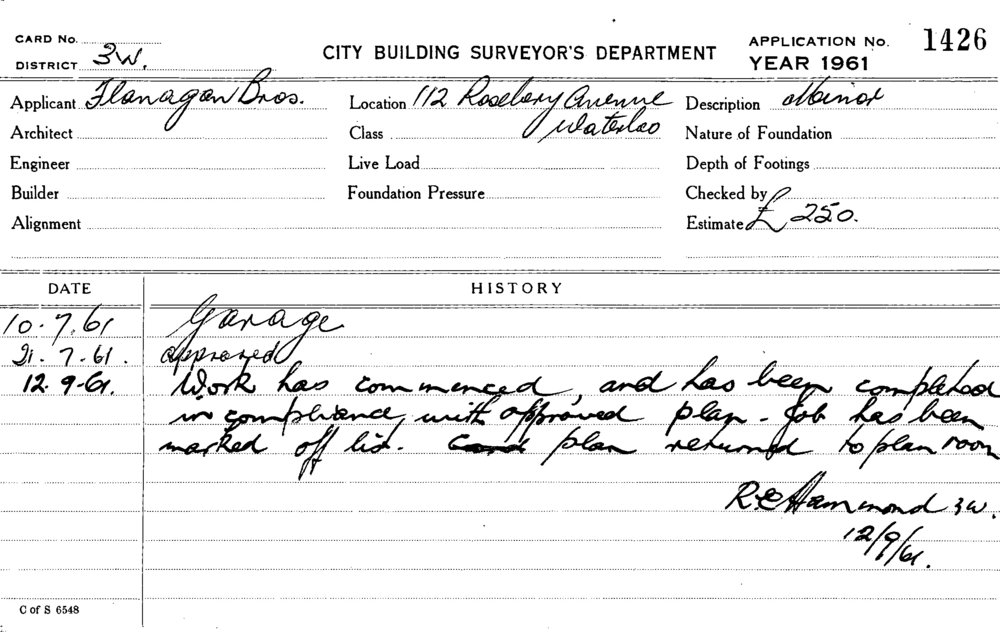 CARD No.
DISTRICT 3W.
CITY BUILDING SURVEYOR'S DEPARTMENT
APPLICATION No. 1426
YEAR 1961
Applicant Flanagan Bros.
Location 112 Rosebery Avenue
Waterloo
Description Minor
Architect
Class
Nature of Foundation
Engineer
Live Load
Depth of Footings
Builder
Foundation Pressure
Checked by
Alignment
Estimate £ 250.
DATE
HISTORY
10.7.61 Garage
21.7.61. approved
12.9.61. Work has commenced, and has been completed
in compliance, with approved plan - Job has been
marked off list. plan returned to plan room
R.E Hammond 3W.
12/9/61.
C of S 6548